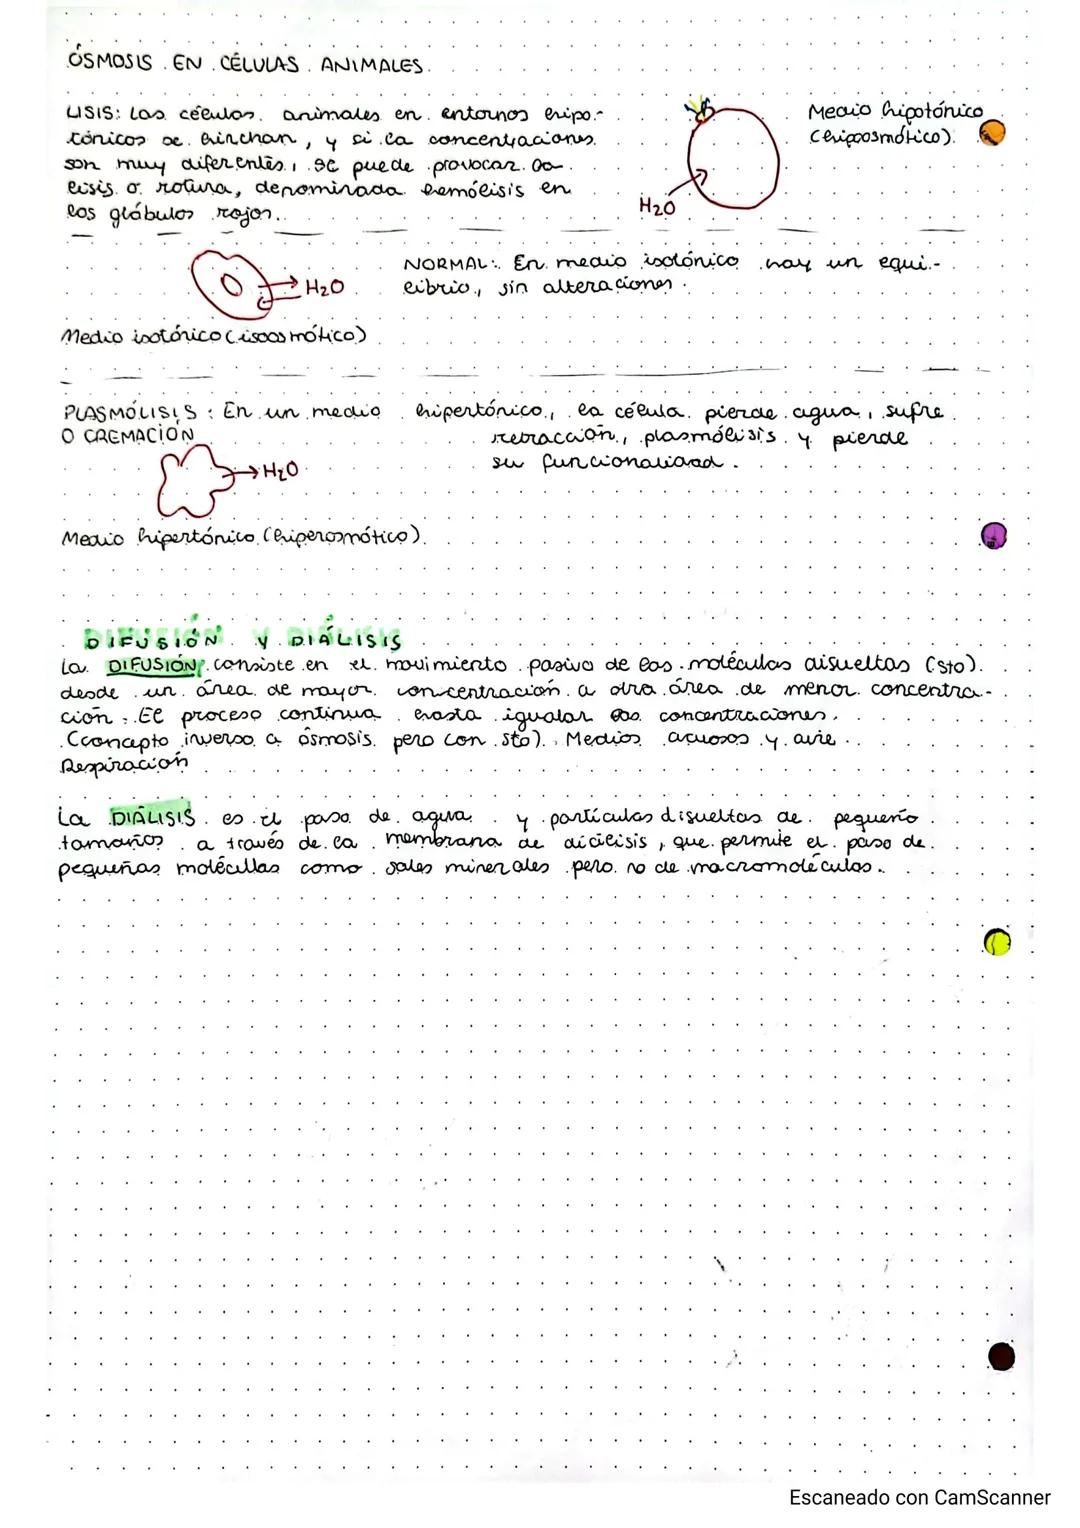 ÓSMOSIS EN CÉLULAS ANIMALES.
LISIS: Las células animales en entornos hipo-
tónicos se hinchan, y si la concentraciones
son muy diferentes, se puede provocar la
lisis o rotura, denominada hemólisis en
los glóbulos rojos.
Medio hipotónico
(hipoosmótico).
H2O
NORMAL: En medio isotónico hay un equi-
librio, sin alteraciones.
H2O
Medio isotónico (isoosmótico)
PLASMÓLISIS: En un medio hipertónico, la célula pierde agua, sufre
O CREMACIÓN
retracción, plasmólisis y pierde
su funcionalidad.
H2O
Medio hipertónico (hiperosmótico).
DIFUSIÓN Y DIÁLISIS
La DIFUSIÓN consiste en el movimiento pasivo de las moléculas disueltas (sto).
desde un área de mayor concentración a otra área de menor concentra-
ción. El proceso continua hasta igualar las concentraciones.
(concepto inverso a ósmosis pero con sto). Medios acuosos y aire.
Respiración
La DIÁLISIS es el paso de agua y partículas disueltas de pequeño
tamaños a través de la membrana de diálisis, que permite el paso de
pequeñas molécullas como sales minerales pero no de macromoléculas.
Escaneado con CamScanner